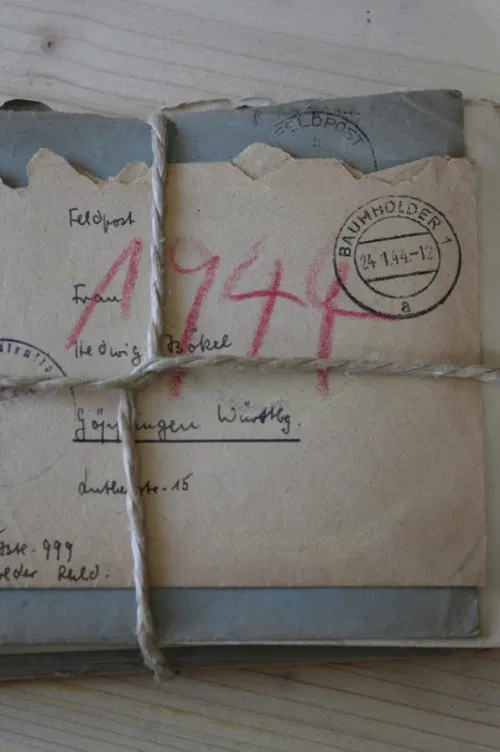 FELDPOST
b
Feldpost
BAUMHOLDER 1
24.1.44.-12
a
1944
Frau
Hedwig
Göppingen Württbg.
Lutherstr. 15
999